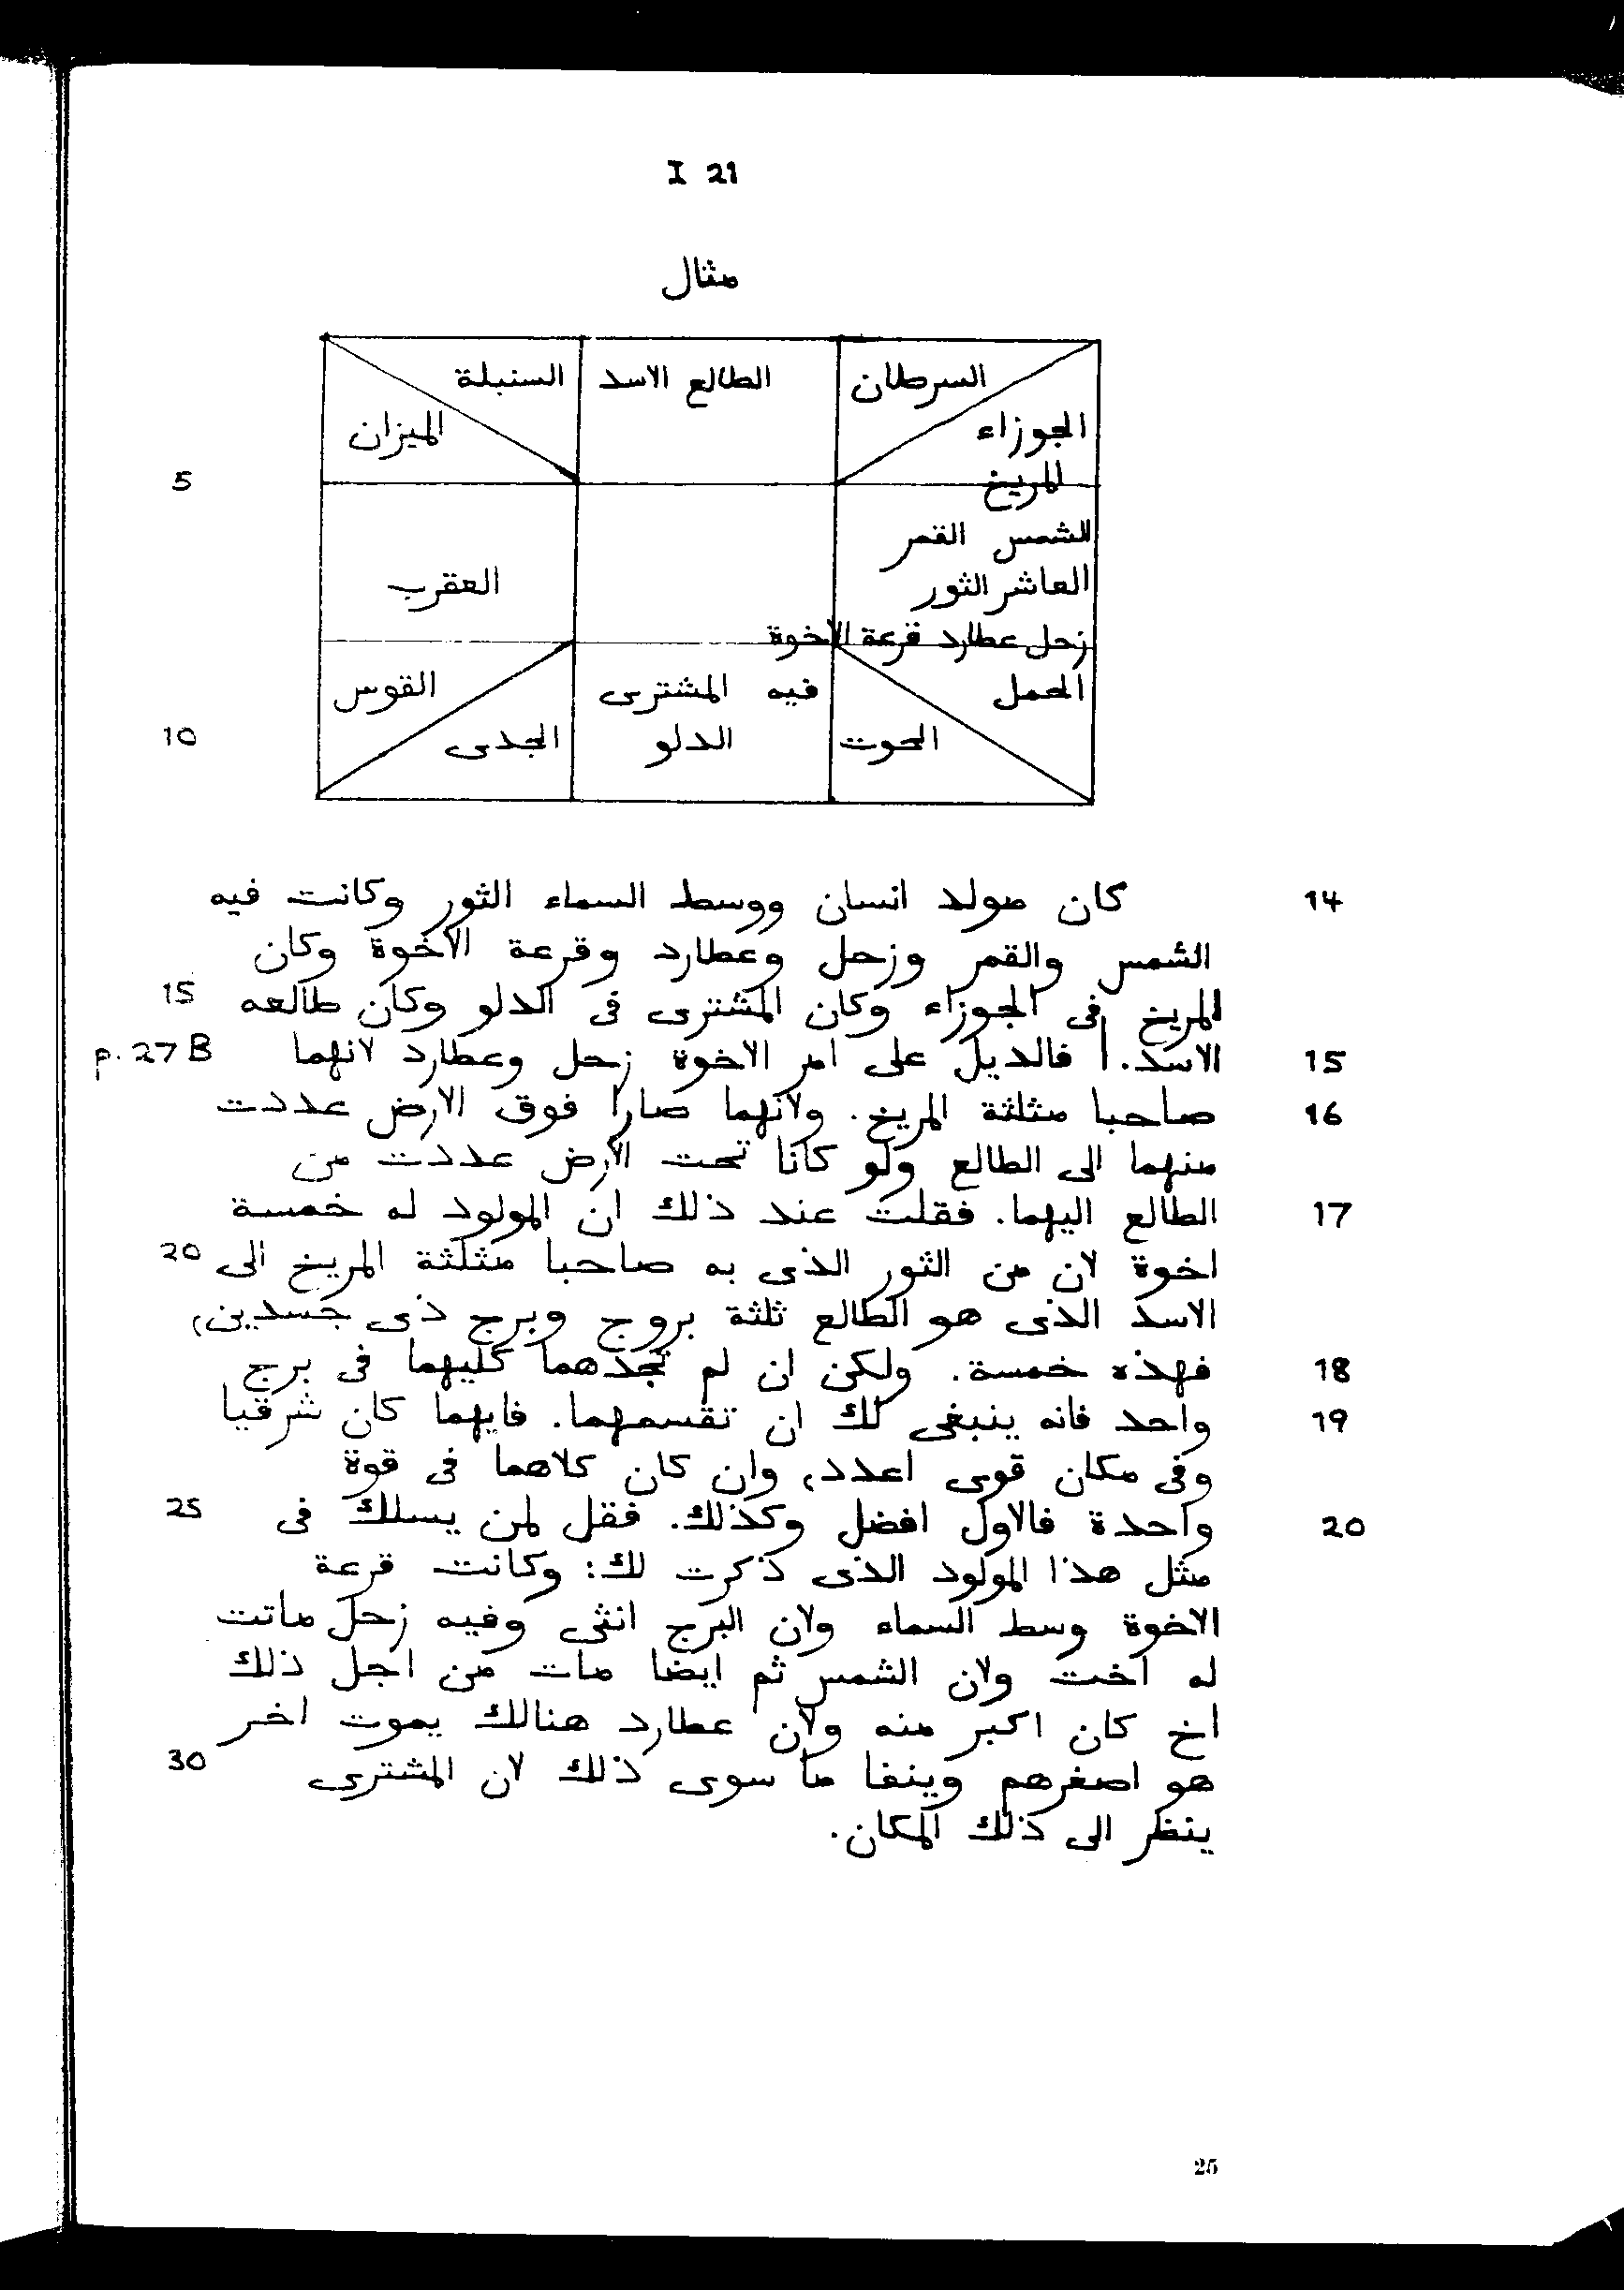 I 21
مثال
السرطان الطالع الاسد السنبلة
الجوزاء الميزان
5 المريخ
الشمس القمر
العاشر الثور العقرب
زحل عطارد قرعة الاخوة
الحمل فيه المشترى القوس
10 الحوت الدلو الجدى
14 كان مولد انسان ووسط السماء الثور وكانت فيه
الشمس والقمر وزحل وعطارد وقرعة الاخوة وكان
المريخ فى الجوزاء وكان المشترى فى الدلو وكان طالعه 15
15 الاسد. | فالديل على امر الاخوة زحل وعطارد لانهما p. 27 B
16 صاحبا مثلثة المريخ. ولانهما صارا فوق الارض عددت
منهما الى الطالع ولو كانا تحت الارض عددت من
17 الطالع اليهما. فقلت عند ذلك ان المولود له خمسة
اخوة لان من الثور الذى به صاحبا مثلثة المريخ الى 20
الاسد الذى هو الطالع ثلثة بروج وبرج ذى جسدين،
18 فهذه خمسة. ولكن ان لم تجدهما كليهما فى برج
19 واحد فانه ينبغى لك ان تقسمهما. فايهما كان شرقيا
وفى مكان قوى اعدد، وان كان كلاهما فى قوة
20 واحدة فالاول افضل وكذلك. فقل لمن يسلك فى 25
مثل هذا المولود الذى ذكرت لك: وكانت قرعة
الاخوة وسط السماء ولان البرج انثى وفيه زحل ماتت
له اخت ولان الشمس ثم ايضا مات من اجل ذلك
اخ كان اكبر منه ولان عطارد هنالك يموت اخر
هو اصغرهم وينفا ما سوى ذلك لان المشترى 30
ينظر الى ذلك المكان.
25